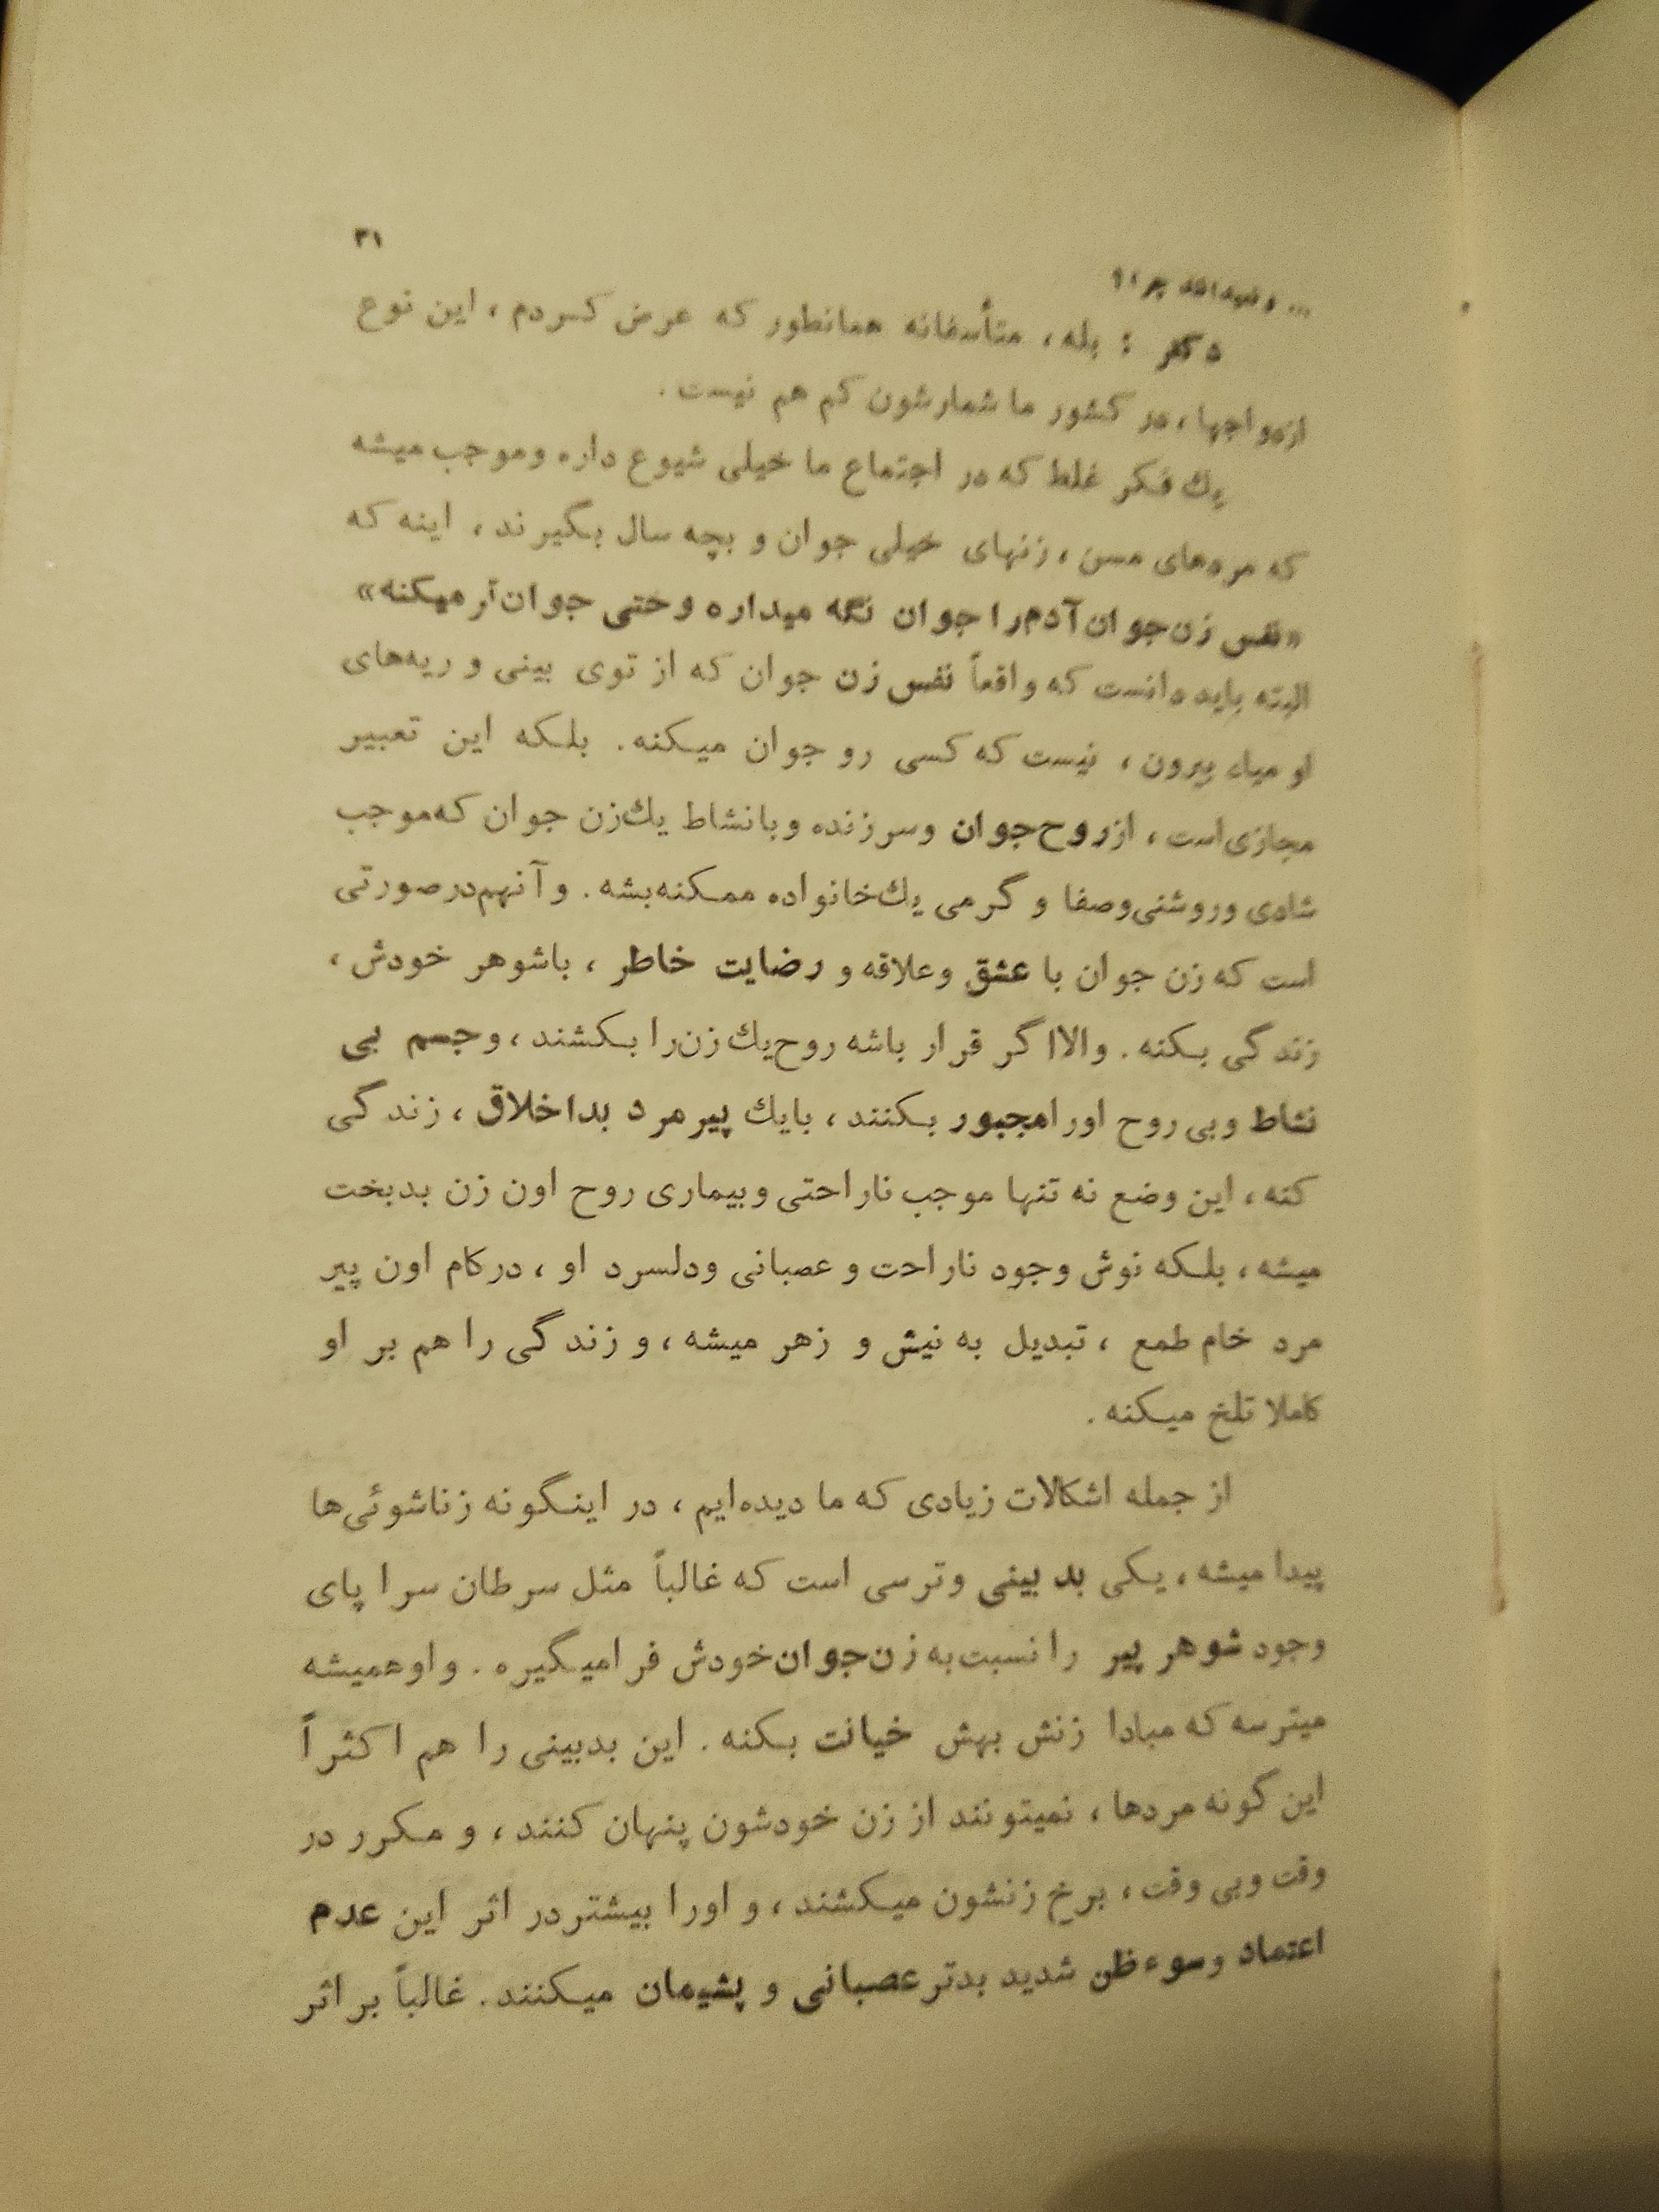 ۳۱
... و نمیدانند چرا؟
دکتر : بله ، متأسفانه همانطور که عرض کـردم ، این نوع
ازدواجها ، در کشور ما شمارشون کم هم نیست .
یك فکر غلط که در اجتماع ما خیلی شیوع داره وموجب میشه
که مردهای مسن ، زنهای خیلی جوان و بچه سال بـگیرند ، اینه که
«نفس زن‌جوان آدم‌را جوان نگه میداره وحتی جوان‌تر میکنه»
البته باید دانست که واقعاً نفس زن جوان که از توی بینی و ریه‌های
او میاد بیرون ، نیست که کسی رو جوان میـکنه . بلـکه این تعبیر
مجازی‌است ، ازروح‌جوان وسرزنده وبانشاط یك‌زن جوان که‌موجب
شادی وروشنی‌وصفا و گرمی یك‌خانواده ممـکنه‌بشه . وآنهم‌درصورتی
است که زن جوان با عشق وعلاقه و رضایت خاطر ، باشوهر خودش ،
زندگی بـکنه . والااگر قرار باشه روح‌یك‌زن‌را بـکشند ، وجسم بی
نشاط وبی روح اورامجبور بـکنند ، بایك پیرمرد بداخلاق ، زندگی
کنه ، این وضع نه تنها موجب ناراحتی وبیماری روح اون زن بدبخت
میشه ، بلـکه نوش وجود ناراحت و عصبانی ودلسرد او ، درکام اون پیر
مرد خام طمع ، تبدیل به نیش و زهر میشه ، و زندگی را هم بر او
کاملا تلخ میـکنه .
از جمله اشکالات زیادی که ما دیده‌ایم ، در اینـگونه زناشوئی‌ها
پیدا میشه ، یـکی بد بینی وترسی است که غالباً مثل سرطان سراپای
وجود شوهر پیر را نسبت‌به زن‌جوان‌خودش فرامیـگیره . واوهمیشه
میترسه که مبادا زنش بهش خیانت بـکنه . این بدبینی را هم اکثراً
این گونه مردها ، نمیتونند از زن خودشون پنهان کنند ، و مـکرر در
وقت وبی وقت ، برخ زنشون میـکشند ، و اورا بیشتردر اثر این عدم
اعتماد وسوءظن شدید بدتر عصبانی و پشیمان میـکنند . غالباً بر اثر